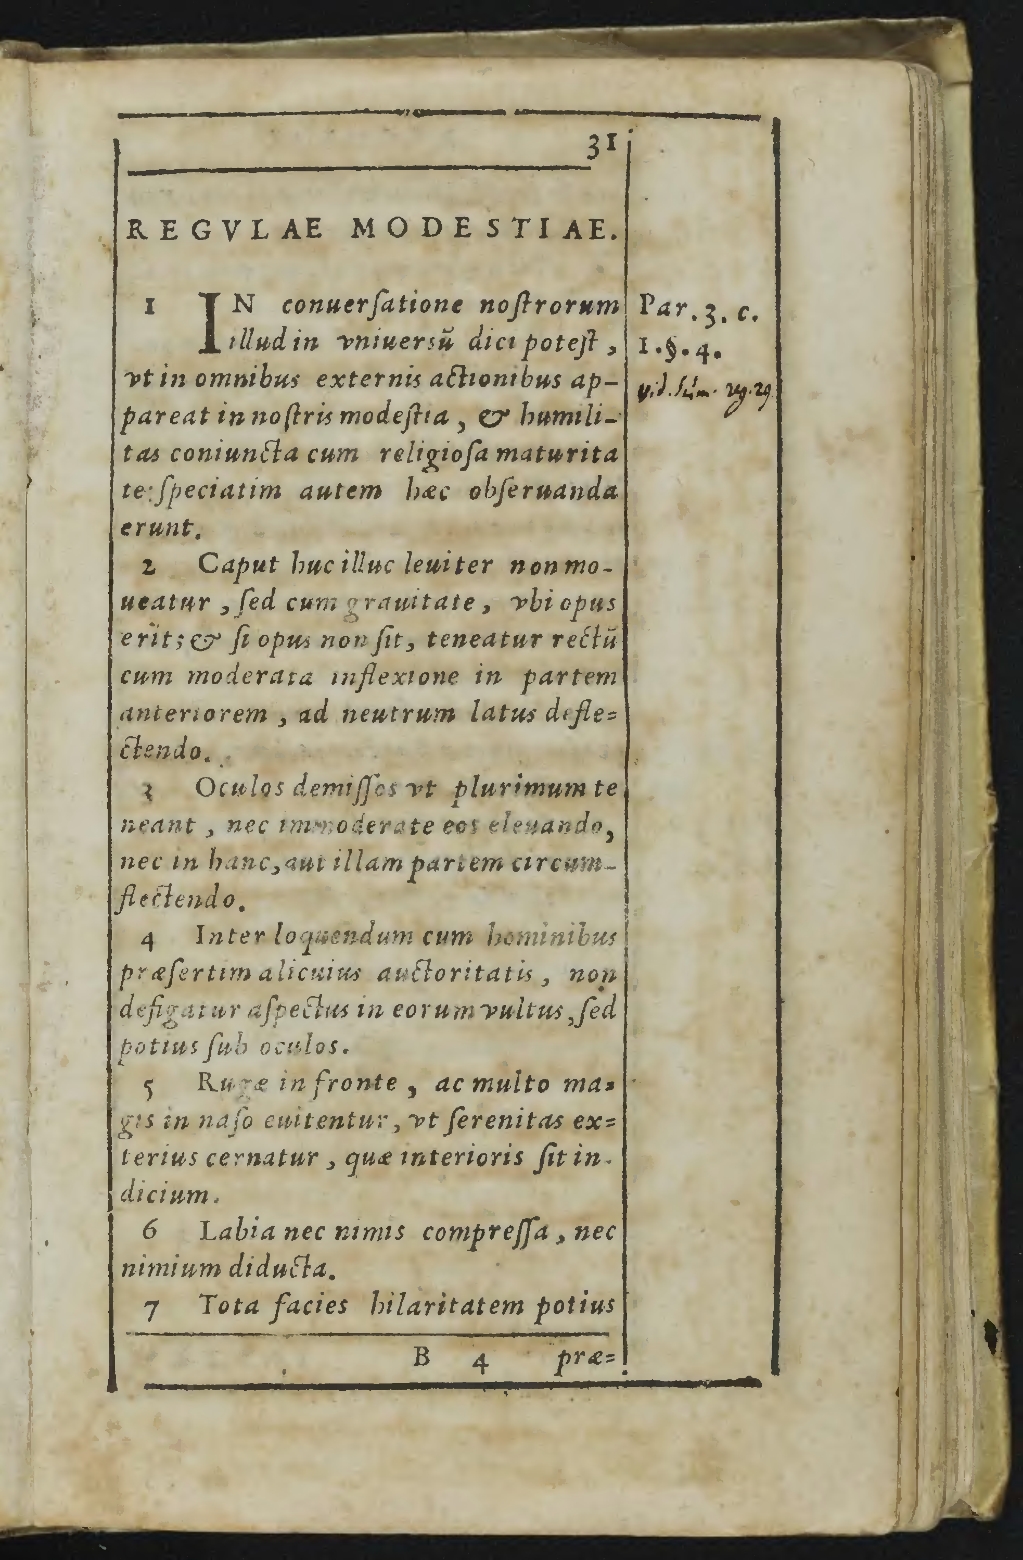 31
REGVLAE MODESTIAE.
1 IN conuerſatione noſtrorum
illud in vniuersũ dici poteſt,
vt in omnibus externis actionibus ap-
pareat in noſtris modeſtia, & humili-
tas coniuncta cum religioſa maturita
te: ſpeciatim autem hæc obſeruanda
erunt.
2 Caput huc illuc leuiter non mo-
ueatur, ſed cum grauitate, vbi opus
erit; & ſi opus non ſit, teneatur rectũ
cum moderata inflexione in partem
anteriorem, ad neutrum latus defle=
ctendo.
3 Oculos demiſſos vt plurimum te
neant, nec immoderate eos eleuando,
nec in hanc, aut illam partem circum-
flectendo.
4 Inter loquendum cum hominibus
præſertim alicuius auctoritatis, non
defigatur aſpectus in eorum vultus, ſed
potius ſub oculos.
5 Rugæ in fronte, ac multo ma=
gis in naſo euitentur, vt ſerenitas ex=
terius cernatur, quæ interioris ſit in-
dicium.
6 Labia nec nimis compreſſa, nec
nimium diducta.
7 Tota facies hilaritatem potius
B 4 præ=
Par. 3. c.
1. §. 4.
vid. Sum. reg. 29